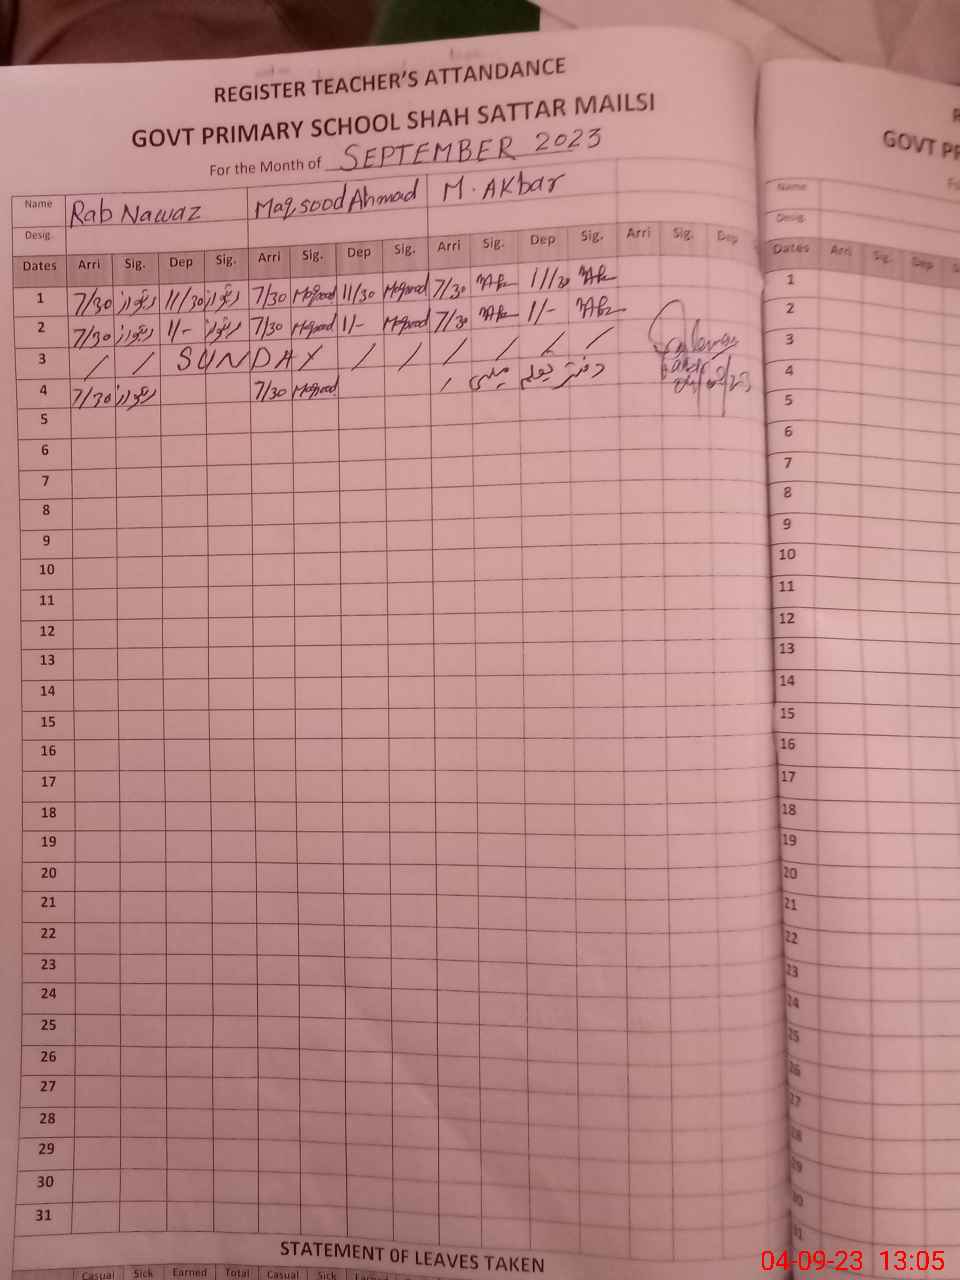 REGISTER TEACHER'S ATTANDANCE
GOVT PRIMARY SCHOOL SHAH SATTAR MAILSI
For the Month of SEPTEMBER 2023
Name Rab Nawaz Maqsood Ahmad M. AKbar
Desig.
Dates Arri Sig. Dep Sig. Arri Sig. Dep Sig. Arri Sig. Dep Sig. Arri Sig. Dep
1 7/30 ربنواز 11/30 ربنواز 7/30 Maqsood 11/30 Maqsood 7/30 11/30
2 7/30 ربنواز 1/- ربنواز 7/30 Maqsood 1/- Maqsood 7/30 1/-
3 / / SUNDAY / / / / / /
4 7/30 ربنواز 7/30 Maqsood / دفتر تعلیم میلسی
5
6
7
8
9
10
11
12
13
14
15
16
17
18
19
20
21
22
23
24
25
26
27
28
29
30
31
STATEMENT OF LEAVES TAKEN
Casual Sick Earned Total Casual Sick
GOVT
Name
Desig.
Dates Arri Sig. Dep
1
2
3
4
5
6
7
8
9
10
11
12
13
14
15
16
17
18
19
20
21
22
23
24
25
26
27
28
29
30
31
04-09-23 13:05